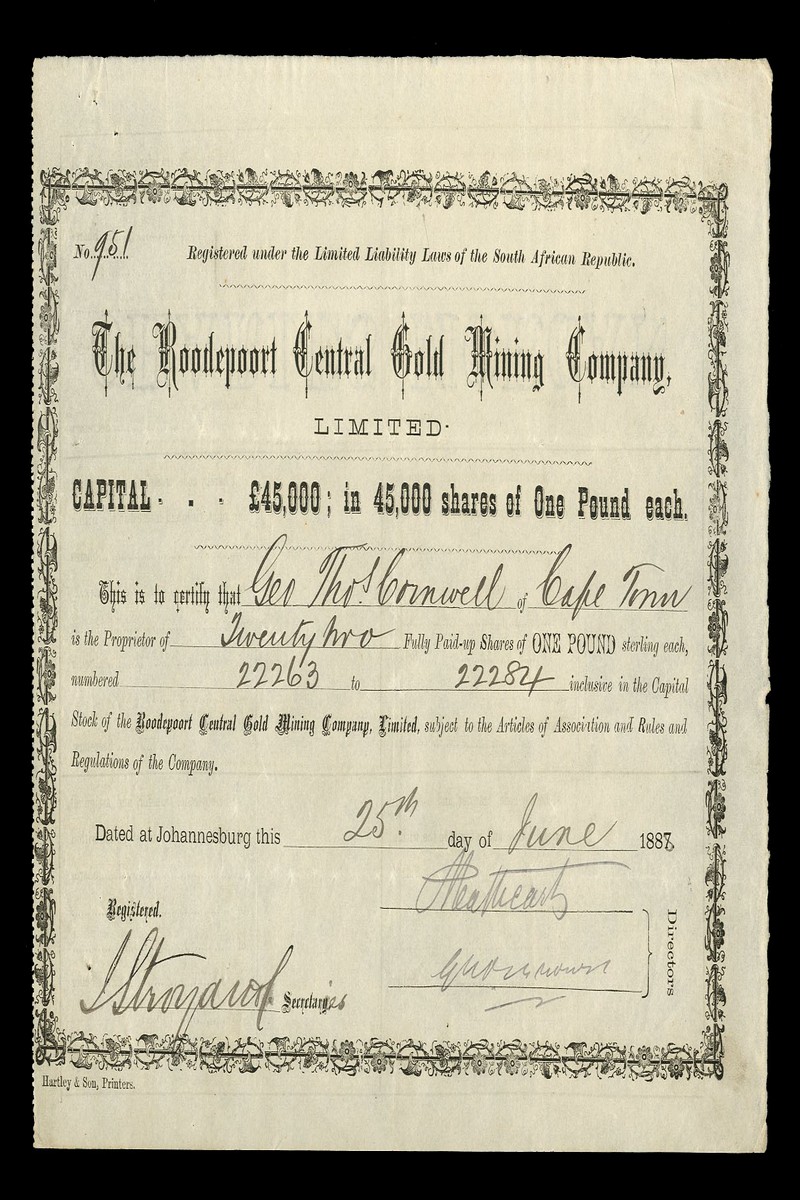 No. 951 Registered under the Limited Liability Laws of the South African Republic.
The Roodepoort Central Gold Mining Company,
LIMITED.
CAPITAL - - - £45,000; in 45,000 shares of One Pound each.
This is to certify that Geo Thos. Cornwell of Cape Town
is the Proprietor of Twenty two Fully Paid-up Shares of ONE POUND sterling each,
numbered 22263 to 22284 inclusive in the Capital
Stock of the Roodepoort Central Gold Mining Company, Limited, subject to the Articles of Association and Rules and
Regulations of the Company.
Dated at Johannesburg this 25th. day of June 188
Registered.
Directors
Secretaries
Hartley & Son, Printers.